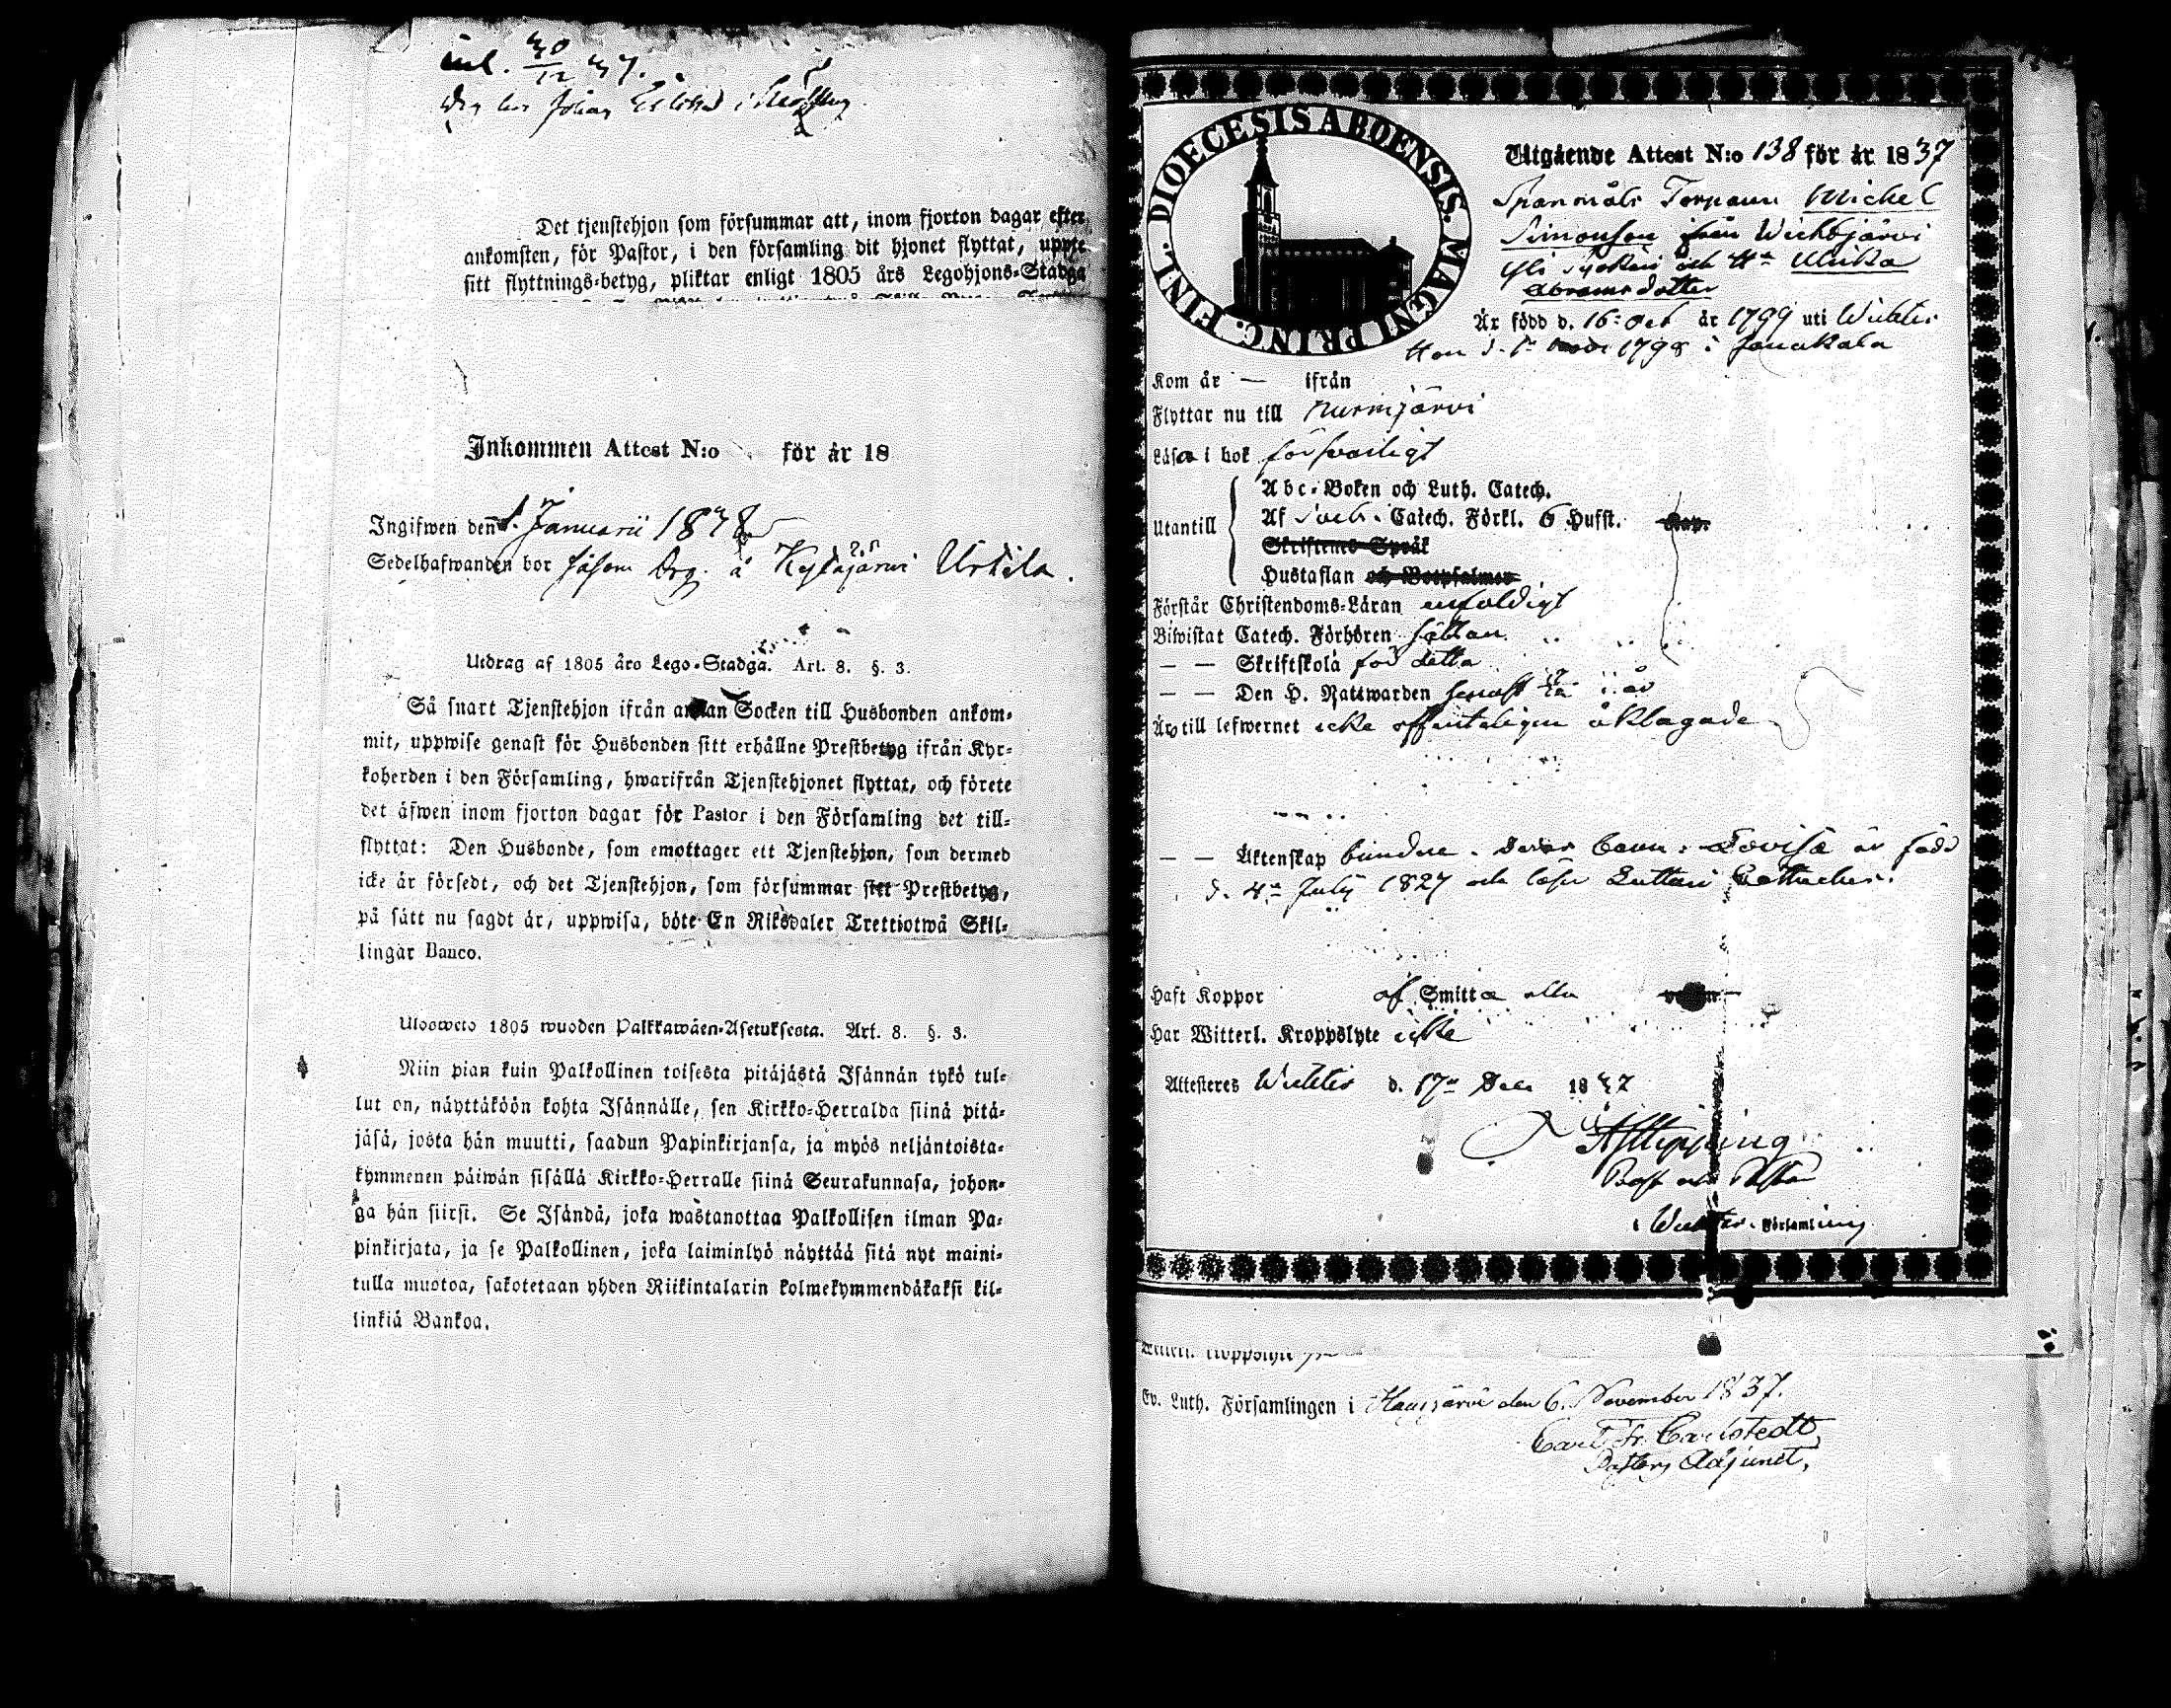 inl. 30/12 37.
Johan
Det tjenstehjon som försummar att, inom fjorton dagar efter
ankomsten, för Pastor, i den församling dit hjonet flyttat, uppte
sitt flyttnings-betyg, pliktar enligt 1805 års Legohjons-Stadga
Inkommen Attest N:o för år 18
Ingifwen den 1. Januarii 1838
Sedelhafwanden bor såsom Drg. å Kytäjärwi Urkila.
Utdrag af 1805 års Lego-Stadga. Art. 8. §. 3.
Så snart Tjenstehjon ifrån annan Socken till Husbonden ankom-
mit, uppwise genast för Husbonden sitt erhållne Prestbetyg ifrån Kyr-
koherden i den Församling, hwarifrån Tjenstehjonet flyttat, och förete
det äfwen inom fjorton dagar för Pastor i den Församling det till-
flyttat: Den Husbonde, som emottager ett Tjenstehjon, som dermed
icke är försedt, och det Tjenstehjon, som försummar slet Prestbetyg,
på sätt nu sagdt är, uppwisa, böte En Riksdaler Trettiotwå Skil-
lingar Banco.
Ulosweto 1805 wuoden Palkkawäen-Asetuksesta. Art. 8. §. 3.
Niin pian kuin Palkollinen toisesta pitäjästä Isännän tykö tul-
lut on, näyttäköön kohta Isännälle, sen Kirkko-Herralda siinä pitä-
jäsä, josta hän muutti, saadun Papinkirjansa, ja myös neljäntoista-
kymmenen päiwän sisällä Kirkko-Herralle siinä Seurakunnasa, johon-
ga hän siirsi. Se Isändä, joka wastanottaa Palkollisen ilman Pa-
pinkirjata, ja se Palkollinen, joka laiminlyö näyttää sitä nyt maini-
tulla muotoa, sakotetaan yhden Riikintalarin kolmekymmendäkaksi kil-
linkiä Bankoa.
DIOECESIS ABOENSIS. MAGNI PRINC. FINL.
Utgående Attest N:o 138 för år 1837
Spanmåls Torparn Michel
Simonson från Wichtijärvi
Yli och H:u Ulrika
Abramsdotter
Är född d. 16: Oct år 1799 uti Wichtis
Hon d. 1:a 1798 i Janakala
Kom år — ifrån
Flyttar nu till Nurmijärvi
Läsa i bok förswarligt
Utantill
Abc-Boken och Luth. Catech.
Af Sveb. Catech. Förkl. 6 Hufst. Kap.
Skriftenes Språk
Hustaflan och Botpsalmer
Förstår Christendoms-Läran enfaldigt
Biwistat Catech. Förhören sällan
— — Skriftskola för detta
— — Den H. Nattwarden senast i år
Äro till lefwernet icke offenteligen åklagade
— — Äktenskap bundne. Deras barn: Lovisa är född
d. 4:a July 1827 och läser Lutteri Cathaches.
Haft Koppor af Smitta alla
Har Witterl. Kroppslyte icke
Attesteres Wichtis d. 17:e Dec 1837
Prost och Pastor
i Wichtis Församling
Witterl. Kroppslyte
Ev. Luth. Församlingen i Hausjärvi den 6. November 1837.
Carl Fr. Carlstedt,
Pastors Adjunct.